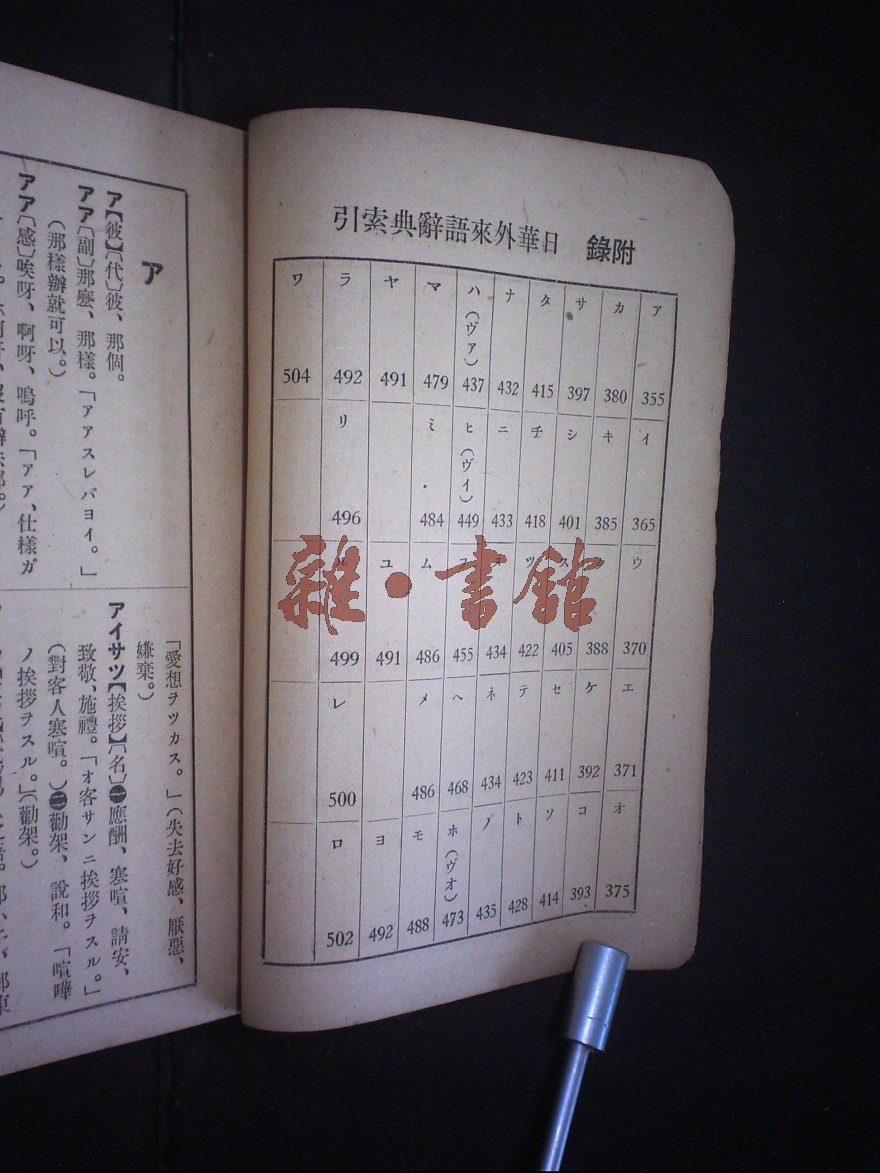 附錄 日華外來語辭典索引
ア カ サ タ ナ ハ(ヴァ) マ ヤ ラ ワ
355 380 397 415 432 437 479 491 492 504
イ キ シ チ ニ ヒ(ヴィ) ミ リ
365 385 401 418 433 449 484 496
ウ ス ツ ヌ フ ム ユ ル
370 388 405 422 434 455 486 491 499
エ ケ セ テ ネ ヘ メ レ
371 392 411 423 434 468 486 500
オ コ ソ ト ノ ホ(ヴォ) モ ヨ ロ
375 393 414 428 435 473 488 492 502
雜·書館
ア
ア【彼】〔代〕彼、那個。
アア〔副〕那麽、那樣。「アアスレバヨイ。」
(那樣辦就可以。)
アア〔感〕唉呀、啊呀、嗚呼。「アア、仕樣ガ
「愛想ヲツカス。」(失去好感、厭惡、
嫌棄。)
アイサツ【挨拶】〔名〕㊀應酬、寒喧、請安、
致敬、施禮。「オ客サンニ挨拶ヲスル。」
(對客人寒喧。)㊁勸架、說和。「喧嘩
ノ挨拶ヲスル。」(勸架。)